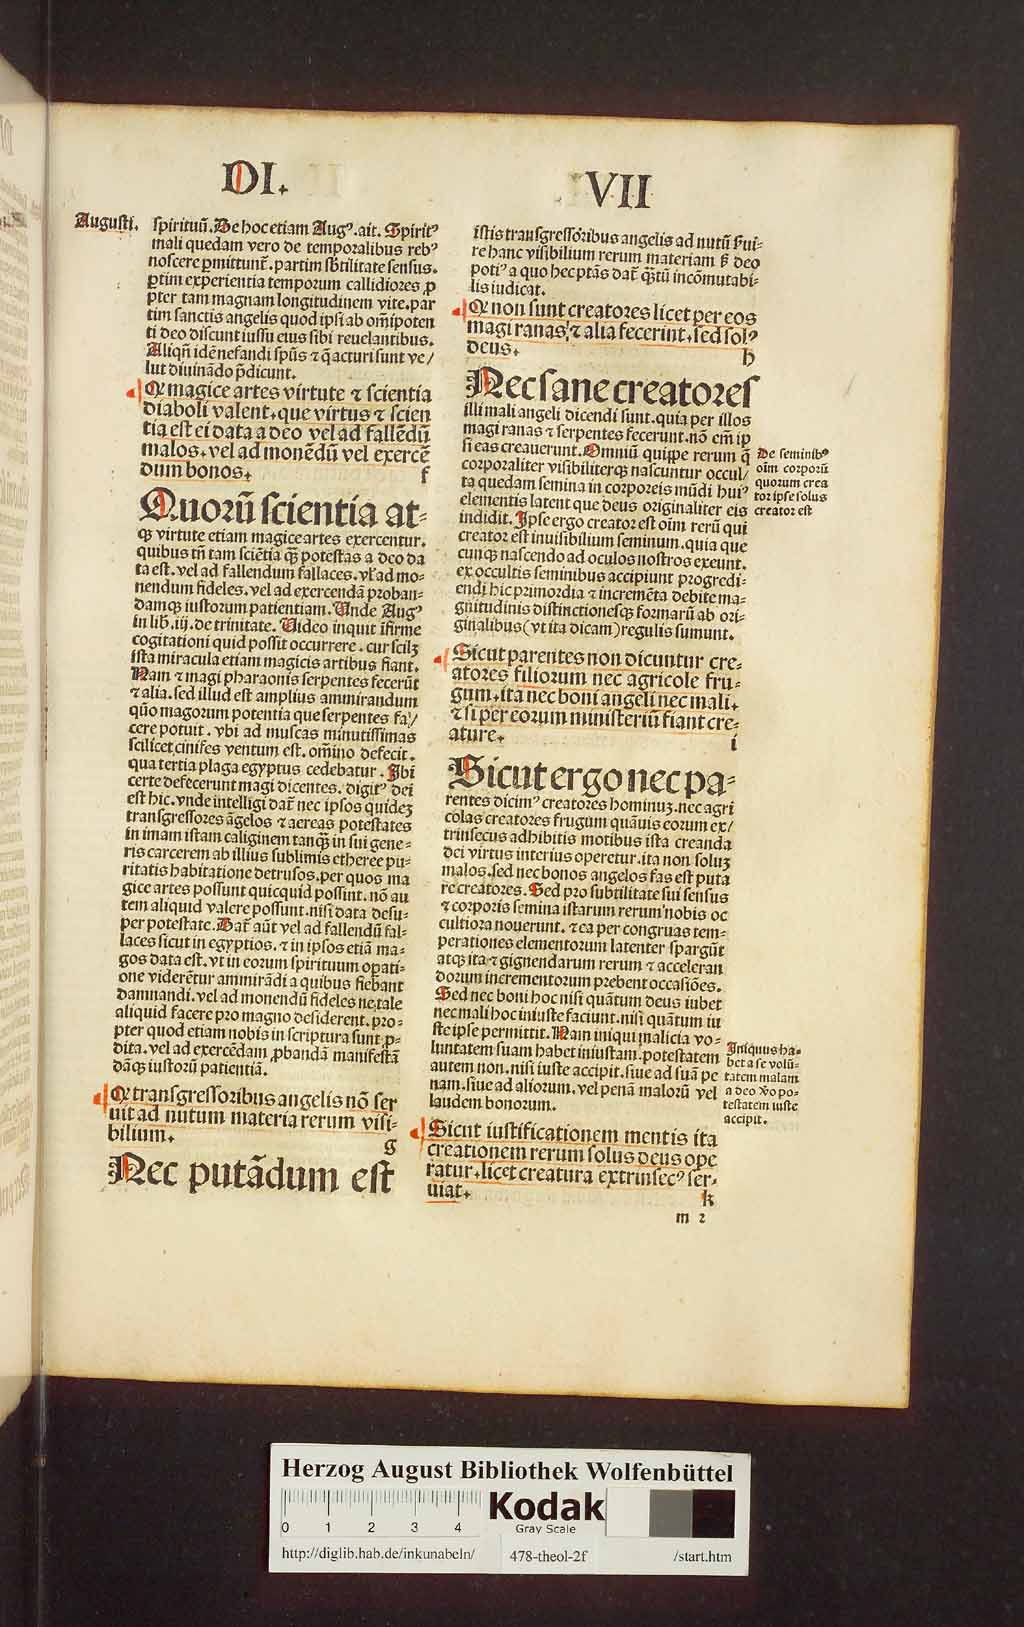 DI.
VII
Augusti.
spirituū. De hoc etiam Augꝰ. ait. Spiritꝰ
mali quedam vero de temporalibus rebꝰ
noscere ꝑmittunt̄. partim sb̄tilitate sensus.
ꝑtim experientia temporum callidiores ꝓ
pter tam magnam longitudinem vite. par
tim sanctis angelis quod ipsi ab om̄ipoten
ti deo discunt iussu eius sibi reuelantibus.
Aliqn̄ idē nefandi spūs ⁊ q̄ acturi sunt ve/
lut diuinādo p̄dicunt.
Q magice artes virtute ⁊ scientia
diaboli valent. que virtus ⁊ scien
tia est ei data a deo vel ad fallēdū
malos. vel ad monēdū vel exercē
dum bonos. f
Quorū scientia at⸗
qꝫ virtute etiam magice artes exercentur.
quibus tn̄ tam sciētia qꝫ potestas a deo da
ta est. vel ad fallendum fallaces. vl̓ ad mo⸗
nendum fideles. vel ad exercendā proban⸗
damqꝫ iustorum patientiam. Unde Augꝰ
in lib. iij. de trinitate. Video inquit īfirme
cogitationi quid possit occurrere. cur scilꝫ
ista miracula etiam magicis artibus fiant.
Nam ⁊ magi pharaonis serpentes fecerūt
⁊ alia. sed illud est amplius ammirandum
quō magorum potentia que serpentes fa/
cere potuit. vbi ad muscas minutissimas
scilicet cinifes ventum est. om̄ino defecit.
qua tertia plaga egyptus cedebatur. Ibi
certe defecerunt magi dicentes. digitꝰ dei
est hic. vnde intelligi dat̄ nec ipsos quidez
transgressores āgelos ⁊ aereas potestates
in imam istam caliginem tanqꝫ in sui gene⸗
ris carcerem ab illius sublimis etheree pu⸗
ritatis habitatione detrusos. per quos ma
gice artes possunt quicquid possint. nō au
tem aliquid valere possunt. nisi data desu⸗
per potestate. Dat̄ aūt vel ad fallendū fal⸗
laces sicut in egyptios. ⁊ in ipsos etiā ma⸗
gos data est. vt in eorum spirituum oꝑati⸗
one viderētur ammirādi a quibus fiebant
damnandi. vel ad monendū fideles ne tale
aliquid facere pro magno desiderent. pro⸗
pter quod etiam nobis in scriptura sunt ꝓ⸗
dita. vel ad exercēdam ꝓbandā manifestā
dāqꝫ iustorū patientiā.
Q transgressoribus angelis nō ser
uit ad nutum materia rerum visi⸗
bilium. g
Nec putādum est
istis transgressoribus angelis ad nutū s̓ui⸗
re hanc visibilium rerum materiam sꝫ deo
potiꝰ a quo hec ptās dat̄ qꝫtū incōmutabi⸗
lis iudicat.
Q non sunt creatores licet per eos
magi ranas ⁊ alia fecerint. sed solꝰ
deus. h
Nec sane creatores
illi mali angeli dicendi sunt. quia per illos
magi ranas ⁊ serpentes fecerunt. nō em̄ ip
si eas creauerunt. Omniū quippe rerum q̄
corporaliter visibiliterqꝫ nascuntur occul/
ta quedam semina in corporeis mūdi huiꝰ
elementis latent que deus originaliter eis
indidit. Ipse ergo creator est oīm rerū qui
creator est inuisibilium seminum. quia que
cunqꝫ nascendo ad oculos nostros exeunt.
ex occultis seminibus accipiunt progredi⸗
endi hic primordia ⁊ incremēta debite ma⸗
gnitudinis distinctionesqꝫ formarū ab ori⸗
ginalibus (vt ita dicam) regulis sumunt.
De seminibꝰ
oīm corporū
quorum crea
tor ipse solus
creator est
Sicut parentes non dicuntur cre⸗
atores filiorum nec agricole fru⸗
gum. ita nec boni angeli nec mali.
⁊ si per eorum ministeriū fiant cre⸗
ature. i
Sicut ergo nec pa⸗
rentes dicimꝰ creatores hominuꝫ. nec agri
colas creatores frugum quāuis eorum ex/
trinsecus adhibitis motibus ista creanda
dei virtus interius operetur. ita non soluꝫ
malos. sed nec bonos angelos fas est puta
re creatores. Sed pro subtilitate sui sensus
⁊ corporis semina istarum rerum nobis oc
cultiora nouerunt. ⁊ ea per congruas tem⸗
perationes elementorum latenter spargūt
atqꝫ ita ⁊ gignendarum rerum ⁊ acceleran
dorum incrementorum prebent occasiōes.
Sed nec boni hoc nisi quātum deus iubet
nec mali hoc iniuste faciunt. nisi quātum iu
ste ipse permittit. Nam iniqui malicia vo⸗
luntatem suam habet iniustam. potestatem
autem non. nisi iuste accipit. siue ad suā pe
nam. siue ad aliorum. vel penā malorū vel
laudem bonorum.
Iniquus ha⸗
bet a se volū⸗
tatem malam
a deo v̓o po⸗
testatem iuste
accipit.
Sicut iustificationem mentis ita
creationem rerum solus deus ope
ratur. licet creatura extrinsecꝰ ser⸗
uiat. k
m 2
Herzog August Bibliothek Wolfenbüttel
0 1 2 3 4
Kodak
Gray Scale
http://diglib.hab.de/inkunabeln/ 478-theol-2f /start.htm